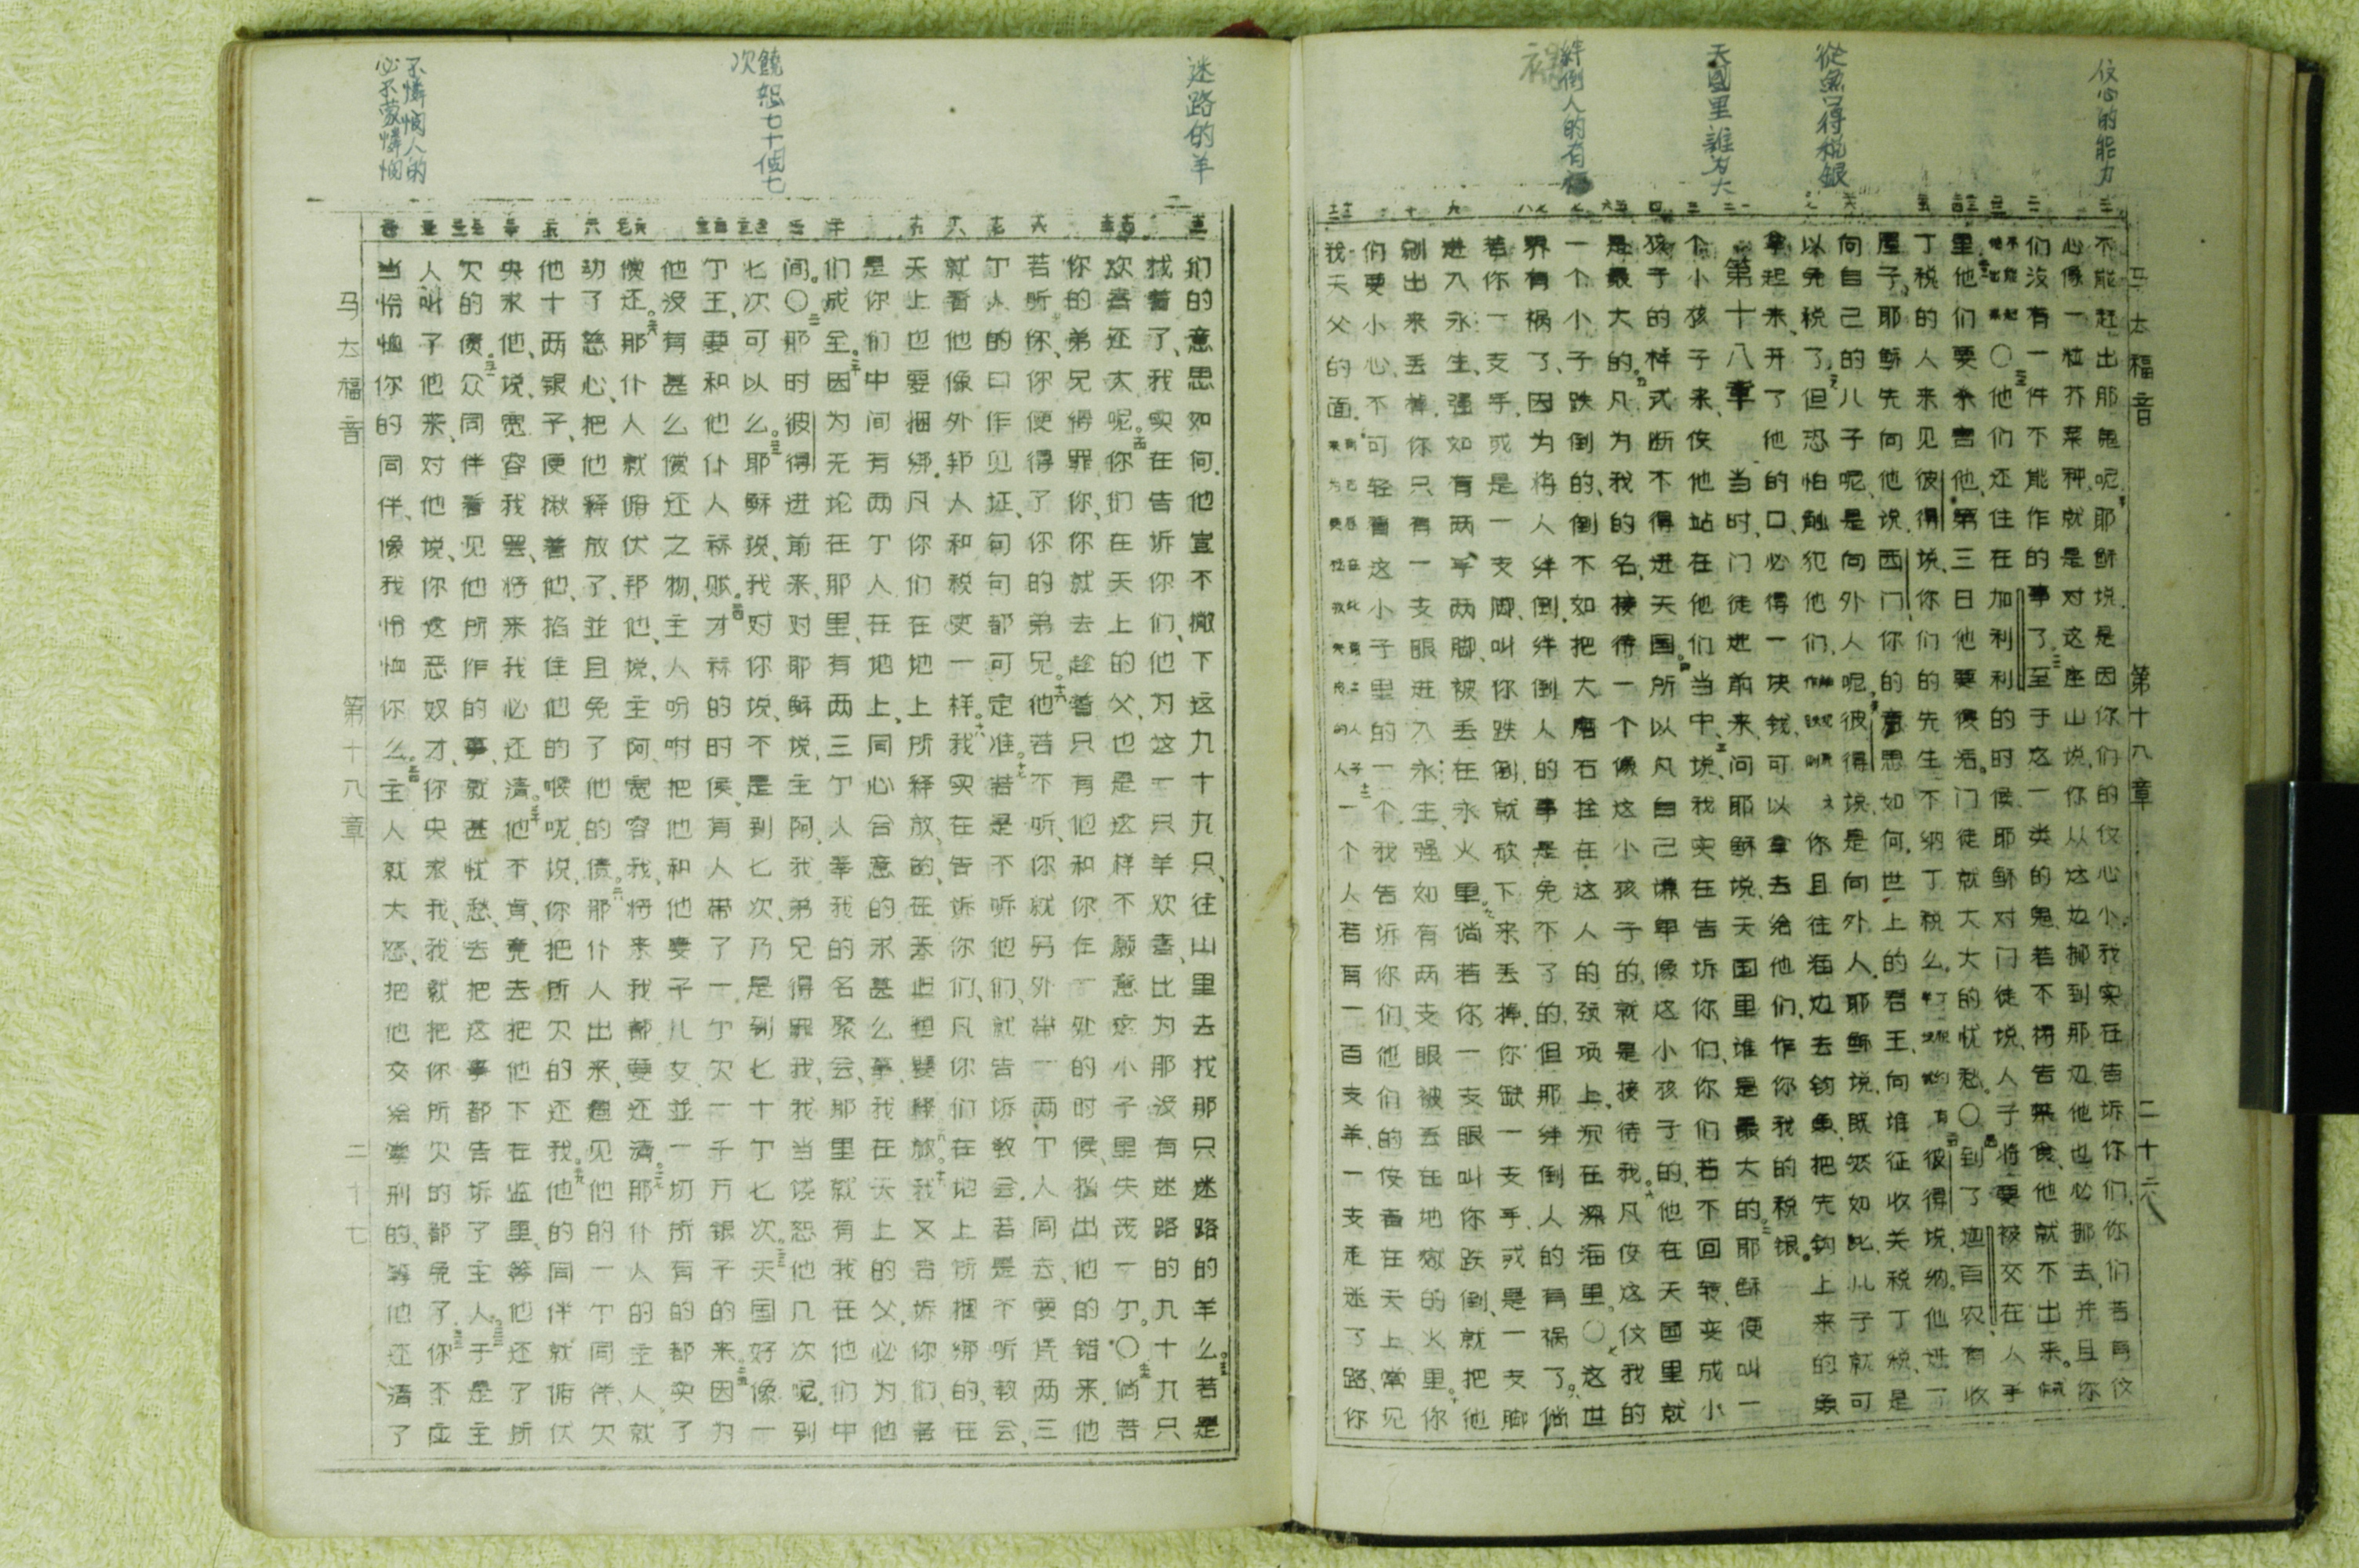 伩心的能力
從魚口得税銀
天國里誰為大
絆倒人的有禍
马太福音 第十八章 二十六
不能赶出那鬼呢、耶稣说、是因你们的伩心小、我实在告诉你们、你们若有伩
心像一粒芥菜种、就是对这座山说、你从这边挪到那边、他也必挪去、并且你
们没有一件不能作的事了、至于这一类的鬼、若不祷告禁食、他就不出来。
〇他们还住在加利利的时候、耶稣对门徒说、人子将要被交在人手
里、他们要杀害他、第三日他要复活。门徒就大大的忧愁。〇到了迦百农、有收
丁税的人来见彼得说、你们的先生不纳丁税么、彼得说、纳。他进了
屋子、耶稣先向他说、西门、你的意思如何、世上的君王、向谁征收关税、丁税、是
向自己的儿子呢、是向外人呢、彼得说、是向外人、耶稣说、既然如此、儿子就可
以免税了、但恐怕触犯他们、你且往海边去钓鱼、把先钓上来的鱼
拿起来、开了他的口、必得一块钱、可以拿去给他们、作你我的税银。
第十八章 当时、门徒进前来、问耶稣说、天国里谁是最大的。耶稣便叫一
个小孩子来、使他站在他们当中、说、我实在告诉你们、你们若不回转、变成小
孩子的样式、断不得进天国、所以凡自己谦卑像这小孩子的、他在天国里就
是最大的。凡为我的名、接待一个像这小孩子的、就是接待我。凡使这伩我的
一个小子跌倒的、倒不如把大磨石拴在这人的颈项上、沉在深海里。〇这世
界有祸了、因为将人绊倒、绊倒人的事是免不了的、但那绊倒人的有祸了。倘
若你一支手、或是一支脚、叫你跌倒、就砍下来丢掉、你缺一支手、或是一支脚
进入永生、强如有两手两脚、被丢在永火里。倘若你一支眼叫你跌倒、就把他
剜出来丢掉、你只有一支眼进入永生、强如有两支眼被丢在地狱的火里。你
们要小心、不可轻看这小子里的一个、我告诉你们、他们的使者在天上、常见
我天父的面。一个人若有一百支羊、一支走迷了路、你
迷路的羊
饒恕七十個七次
不憐憫人的必不蒙憐憫
们的意思如何、他岂不撇下这九十九只、往山里去找那只迷路的羊么。若是
找着了、我实在告诉你们、他为这一只羊欢喜、比为那没有迷路的九十九只
欢喜还大呢。你们在天上的父、也是这样不愿意这小子里失丧一个。〇倘若
你的弟兄得罪你、你就去趁着只有他和你在一处的时候、指出他的错来、他
若听你、你便得了你的弟兄。若不听、你就另外带一两个人同去、要凭两三
个人的口作见证、句句都可定准。若是不听他们、就告诉教会、若是不听教会、
就看他像外邦人和税吏一样。我实在告诉你们、凡你们在地上所捆绑的、在
天上也要捆绑、凡你们在地上所释放的、在天上也要释放。我又告诉你们、若
是你们中间有两个人在地上、同心合意的求甚么事、我在天上的父、必为他
们成全。因为无论在那里、有两三个人奉我的名聚会、那里就有我在他们中
间。〇那时彼得进前来、对耶稣说、主阿、我弟兄得罪我、我当饶恕他几次呢、到
七次可以么。耶稣说、我对你说、不是到七次、乃是到七十个七次。天国好像一
个王、要和他仆人算账。才算的时候、有人带了一个欠一千万银子的来。因为
他没有甚么偿还之物、主人吩咐把他和他妻子儿女、並一切所有的都卖了
偿还。那仆人就俯伏拜他、说、主阿、宽容我、将来我都要还清。那仆人的主人、就
动了慈心、把他释放了、並且免了他的债。那仆人出来、遇见他的一个同伴、欠
他十两银子、便揪着他、掐住他的喉咙、说、你把所欠的还我。他的同伴就俯伏
央求他、说、宽容我罢、将来我必还清。他不肯、竟去把他下在监里、等他还了所
欠的债。众同伴看见他所作的事、就甚忧愁、去把这事都告诉了主人。于是主
人叫了他来、对他说、你这恶奴才、你央求我、我就把你所欠的都免了、你不应
当怜恤你的同伴、像我怜恤你么。主人就大怒、把他交给掌刑的、等他还清了
马太福音 第十八章 二十七